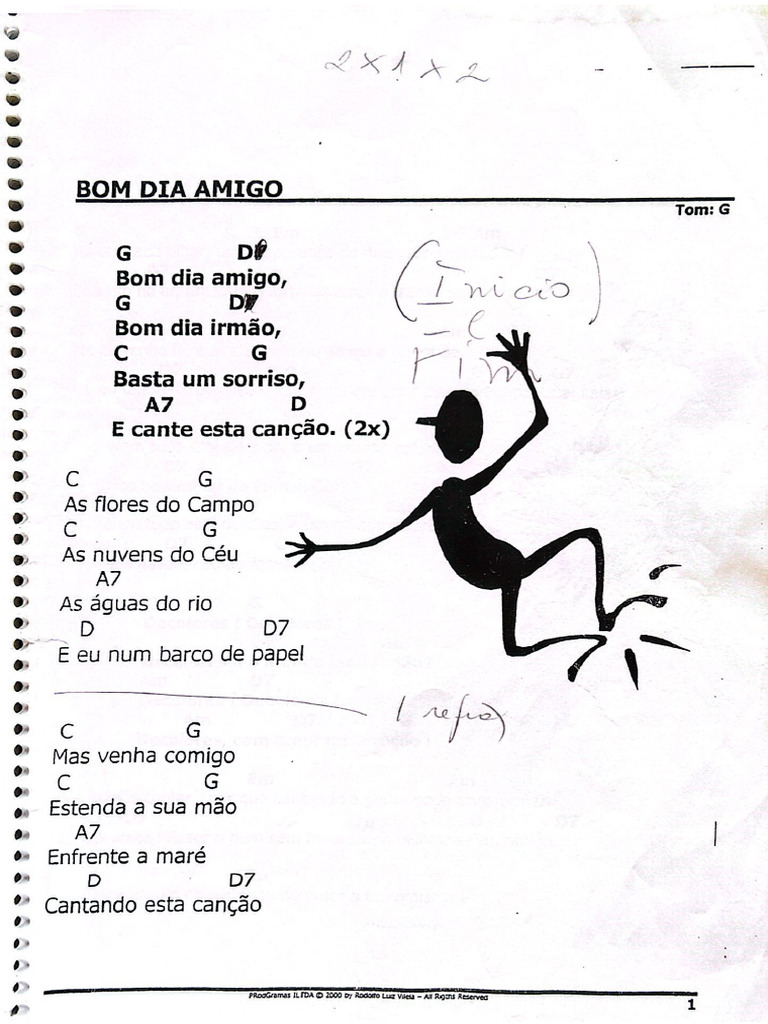 2 x 1 x 2
BOM DIA AMIGO
Tom: G
G D
Bom dia amigo,
(Início
G D7
Bom dia irmão,
e
C G
Fim
Basta um sorriso,
A7 D
E cante esta canção. (2x)
C G
As flores do Campo
C G
As nuvens do Céu
A7
As águas do rio
D D7
E eu num barco de papel
C G
Mas venha comigo
C G
Estenda a sua mão
A7
Enfrente a maré
D D7
Cantando esta canção
PRodGramas ILTDA © 2000 by Rodolfo Luiz Vilela – All Rigths Reserved
1